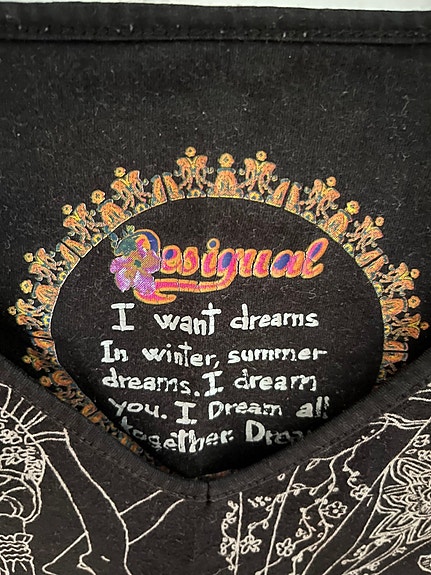 Desigual
I want dreams
In winter, summer
dreams. I dream
you. I Dream all
together.